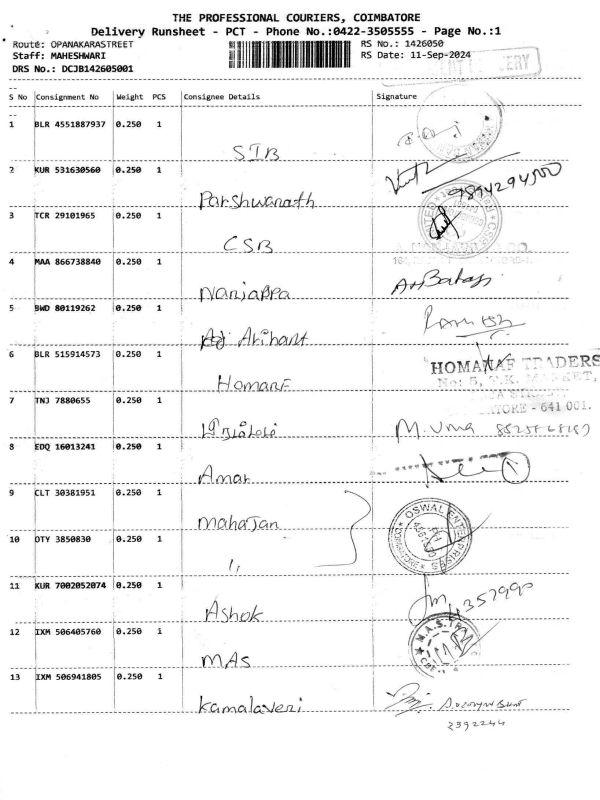 THE PROFESSIONAL COURIERS, COIMBATORE
Delivery Runsheet - PCT - Phone No.:0422-3505555 - Page No.:1
Route: OPANAKARASTREET
RS No.: 1426050
Staff: MAHESHWARI
RS Date: 11-Sep-2024
DRS No.: DCJB142605001
S No Consignment No Weight PCS Consignee Details Signature
1 BLR 4551887937 0.250 1
SIB
2 KUR 531630560 0.250 1
9894294500
Parshwanath
3 TCR 29101965 0.250 1
CSB
4 MAA 866738840 0.250 1
Nanjappa
5 BWD 80119262 0.250 1
Ramesh
Arihant
6 BLR 515914573 0.250 1
HOMANAF TRADERS
No: 5, T.K. MARKET,
Homanf
7 TNJ 7880655 0.250 1
641 001.
M. Uma
8 EDQ 16013241 0.250 1
Amar
9 CLT 30381951 0.250 1
OSWAL ENTERPRISES
Mahajan
10 OTY 3850830 0.250 1
"
11 KUR 7002052074 0.250 1
4357990
Ashok
12 IXM 506405760 0.250 1
MAS
13 IXM 506941805 0.250 1
Kamalaveni
2392244